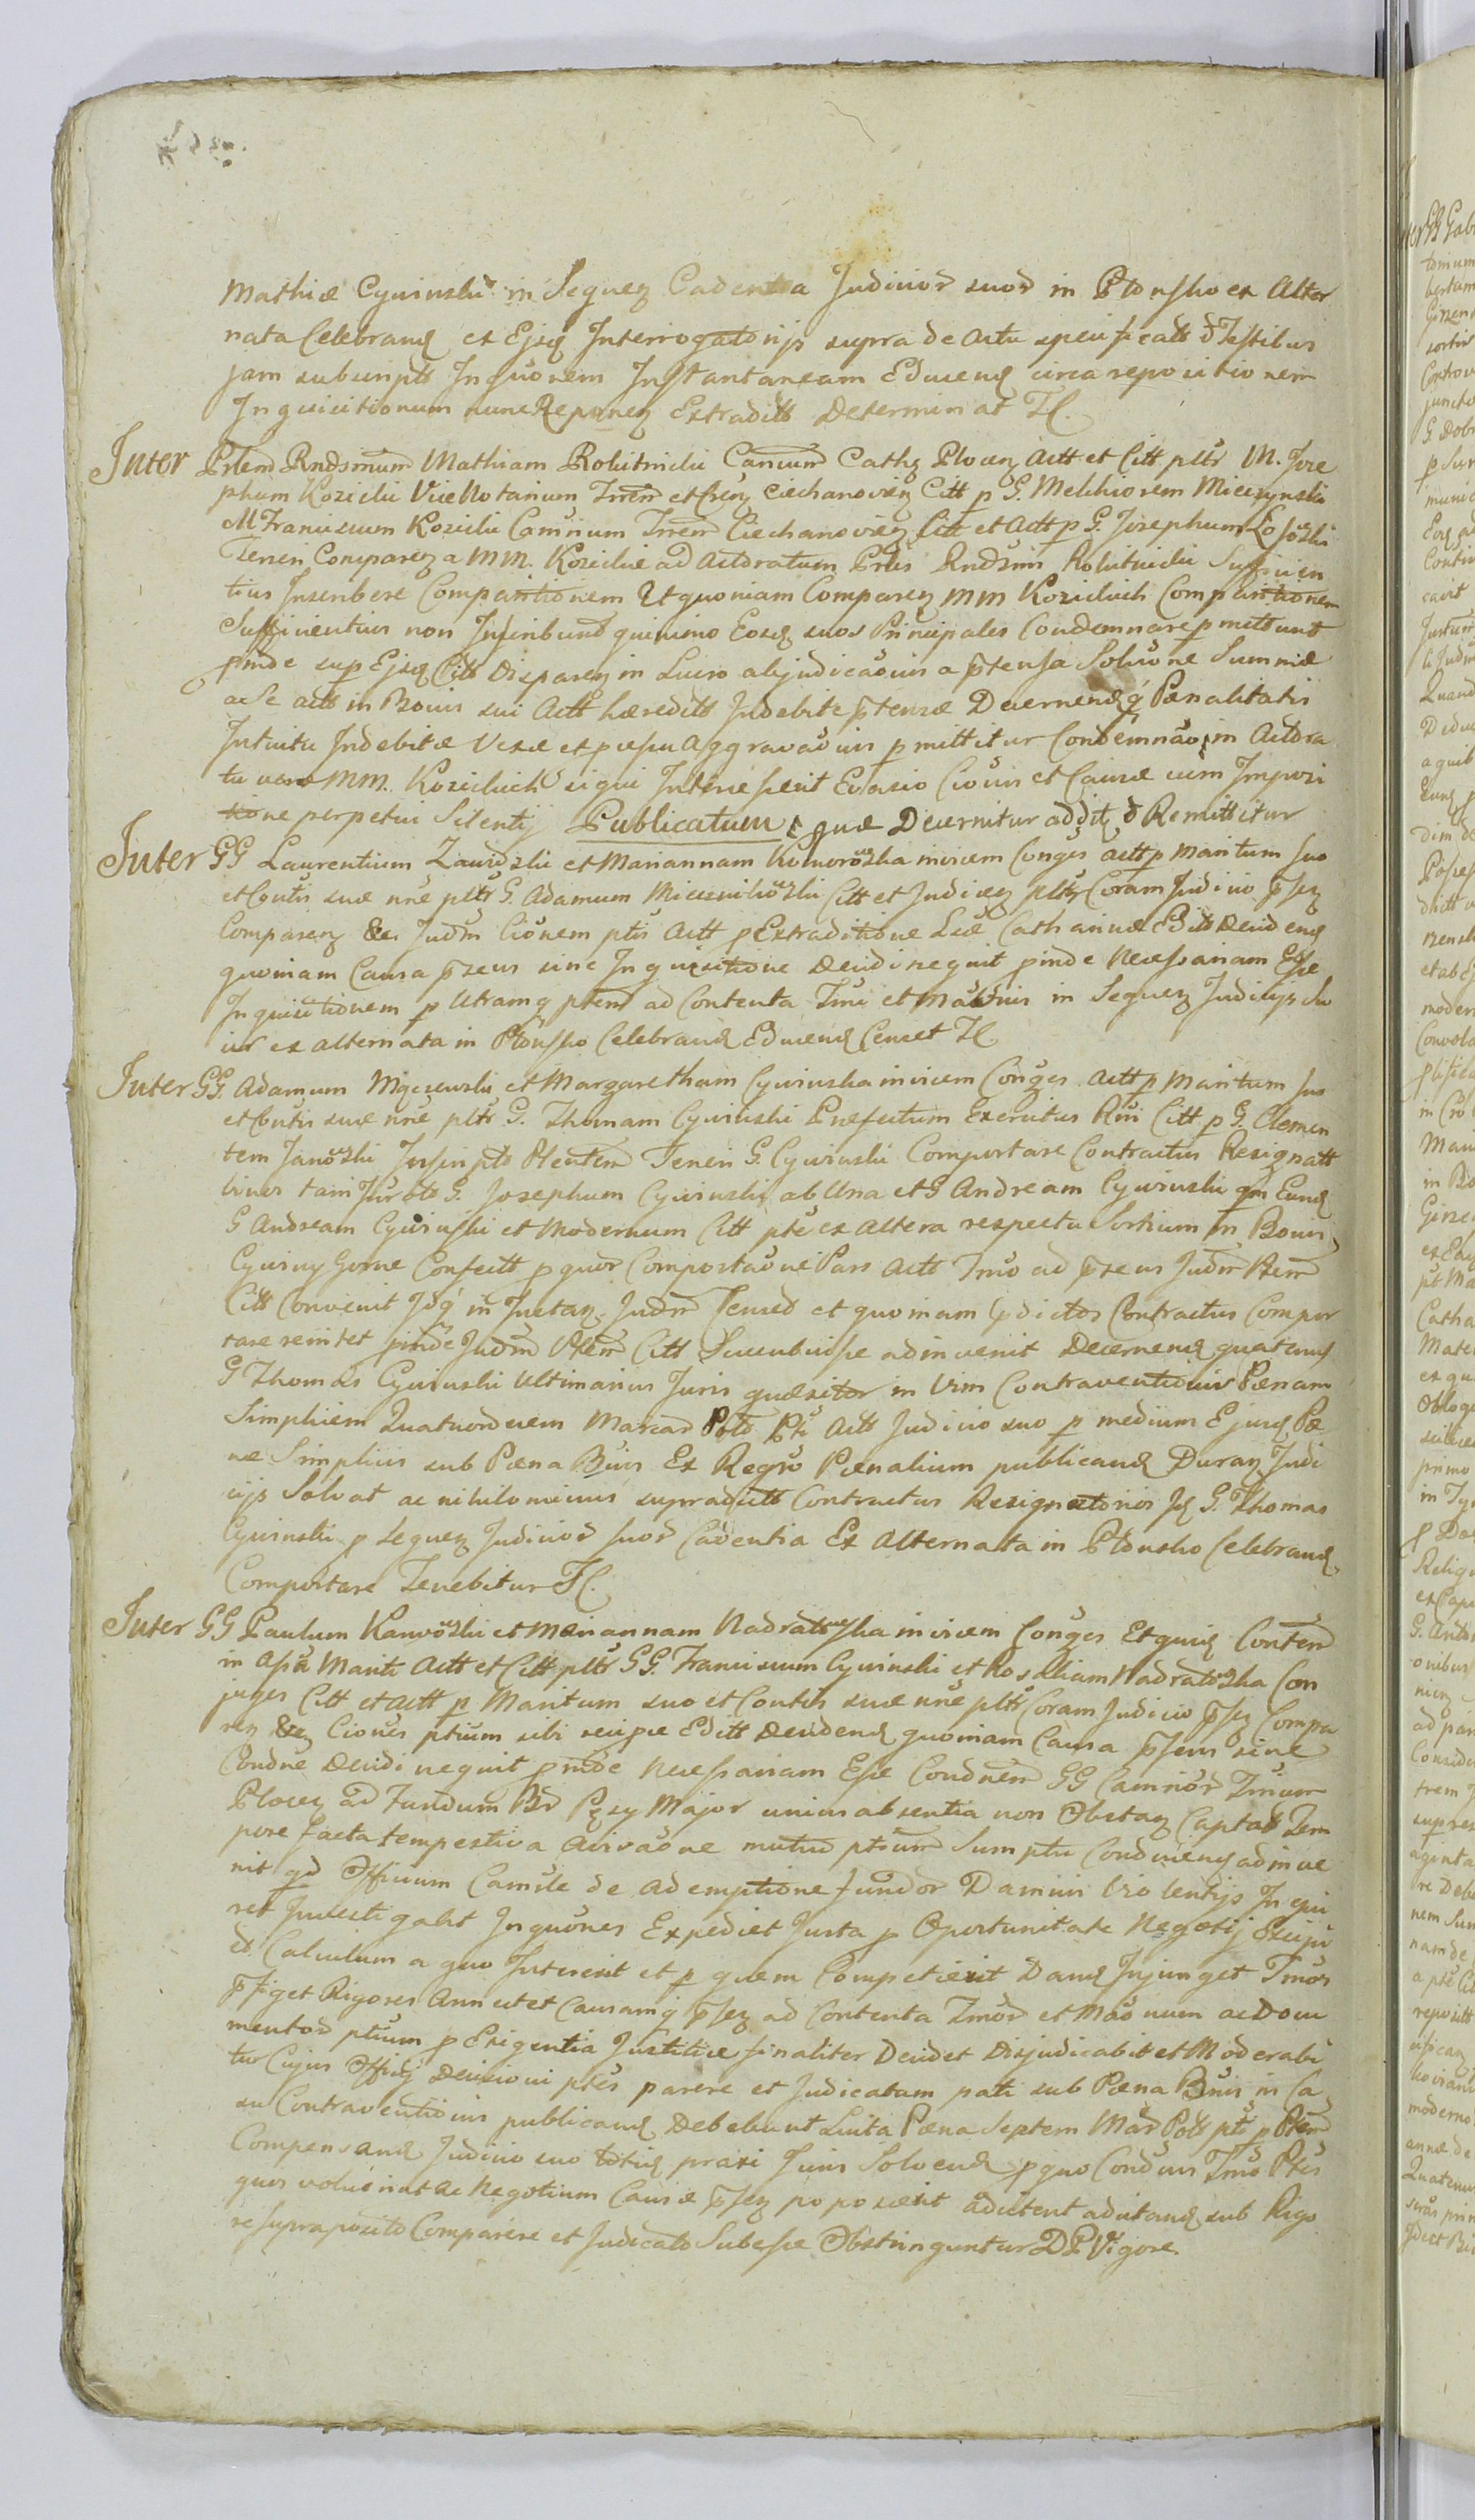 Mathiæ Cywinski in Sequen Cadentia Judicior suor in Płonsko ex Alter
nata Celebrand ex Ejsd Interrogatorijs supra de Actu specificatt Testibus
jam subscripts Inquonem Instantaneam Educend circa repositionem
Inquisitionum nunc Reponen Extraditt Determinat Tt.
Inter Ptem Rndsmum Mathiam Rokitnicki Canicum Cathę Plocen Actt et Citt pltr M. Jose
phum Kozicki Vice Notarium Trrem et Cren Ciechanovien Citt p G. Melchiorem Miczynski
M Franciscum Kozicki Camrium Trrem Ciechanovien Citt et Actt p G. Josephum
Tenen Comparen a MM. Kozickie ad Actoratum Ptis Rndsmi Rokitnicki Sufficien
tius Inscribere Comparitionem Et quoniam Comparen MM Kozickich Comparitionem
Sufficientius non Inscribunt quinimo Eosd suos Principales Condemnare pmittunt
pinde sup Ejsd Citt Disparen in Lucro abjudicaonis a ptensa Soluone Summæ
ac Se actt in Bonis sui Actt hæreditt Indebite ptensæ Decernend q Pænalitatis
Intuitu Indebitæ Vexæ et ... Aggravaonis pmittitur Condemnao, in Actora
tu vero MM. Kozickich siqui Interesserit Evasio Cionis et Causæ cum Imposi
tione perpetui Silentij Publicatum, quæ Decernitur addit Remittitur
Inter GG Laurentium Zawidzki et Mariannam Komorowska invicem Conges actt p Maritum suo
et Contis suæ nne pltr G. Adamum Miecznikowski Citt et Judicen pltr Coram Judicio psen
Comparen &. Judm Cionem ptis Actt p Extraditione Lræ Catharinæ Editt Decidend
quoniam Causa psens sine Inquisitione Decidi nequit pinde Necessariam Esse
Inquisitionem p Utramq ptem ad Contenta Tmi et in Sequen Judicijs Su
is ex alternata in Płonsko Celebrand Educend Censet Tt
Inter GG. Adamum Mgczewski et Margaretham Cywinska invicem Conges Actt p Maritum suo
et Contis suæ nne pltr G. Thomam Cywinski Præfectum Exercitus Rni Citt p G. Clemen
tem Janowski Inscripto Plentem Teneri G. Cywinski Comportare Contractus Resignatt
binos tam G. Josephum Cywinski ab Una et G Andream Cywinski qm Eund
G Andream Cywinski et Modernum Citt pte ex altera respectu Sortium in Bonis
Cywiny Gorne Confectt p quor Comportaone Pars Actt Tmo ad psens Judm Ptem
Citt Convenit Idq in Instan Judm Censed et quoniam pdictos Contractus Compor
tare renitet pinde Judm Ptem Citt Succubuisse adinvenit Decernend quatenus
G Thomas Cywinski Ultimarius Juris quæsitor in Vim Contraventionis Pænam
Simplicem Quatuordecem Marcar Polt Pti Actt Judicio suo p medium Ejusd Pæ
næ Simplicis sub Pæna Bnis Ex Regro Pænalium publicand Duran Judi
cijs Solvat ac nihilominus supradictt Contractus Resignatorios Id G. Thomas
Cywinski p Sequen Judicior suor Cadentia Ex Alternata in Płonsko Celebrand
Comportare Tenebitur Tt.
Inter GG Paulum Karwowski et Mariannam Nadratowska invicem Conges Et quid Conten
in Assa Mariti Actt et Citt pltr GG. Franciscum Cywinski et Rosaliam Nadratowska Con
juges Citt et actt p Maritum suo et Contis suæ nne pltr Coram Judicio psen Compa
ren &. Ciones ptium sibi recipe Editt Decidend quoniam Causa psens sine
Condne Decidi nequit pinde Necessariam Esse Condnem GG Camrior Tmium
Plocen ad Fundum Br Pęsy Major unius absentia non Obstan Captato Tem
pore facta tempestiva Avisaone mutuo ptium Sumptu Conducend adinve
nit qd Officium Camrle de ademptione fundor Damnis Violentijs Inqui
ret Investigabit Inquones Expediet Justa p Oportunitate Negotij
et Calculum a quo Intererit et p quem Competierit Dand Injunget Tmos
pfiget Rigores Annectet Causamq psen ad Contenta Tmor et Mao num ac Docu
mentor ptium p Exigentia Justitiæ finaliter Decidet Disjudicabit et Moderabi
tur Cujus Officij Decisioni ptes parere et Judicatum pati sub Pæna Bnis in Ca
su Contraventionis publicand Debebunt Luita Pæna Septem Mar Polt pti p Ptem
Compensand Judicio suo totid praxi Juris Solvend p quo Condnis Tmo Ptes
quos voluerint ac Negotium Causæ psen poposcerit adcitent adcitand sub Rigo
re supraposito Comparere et Judicato Subesse Obstringuntur D P Vigore.